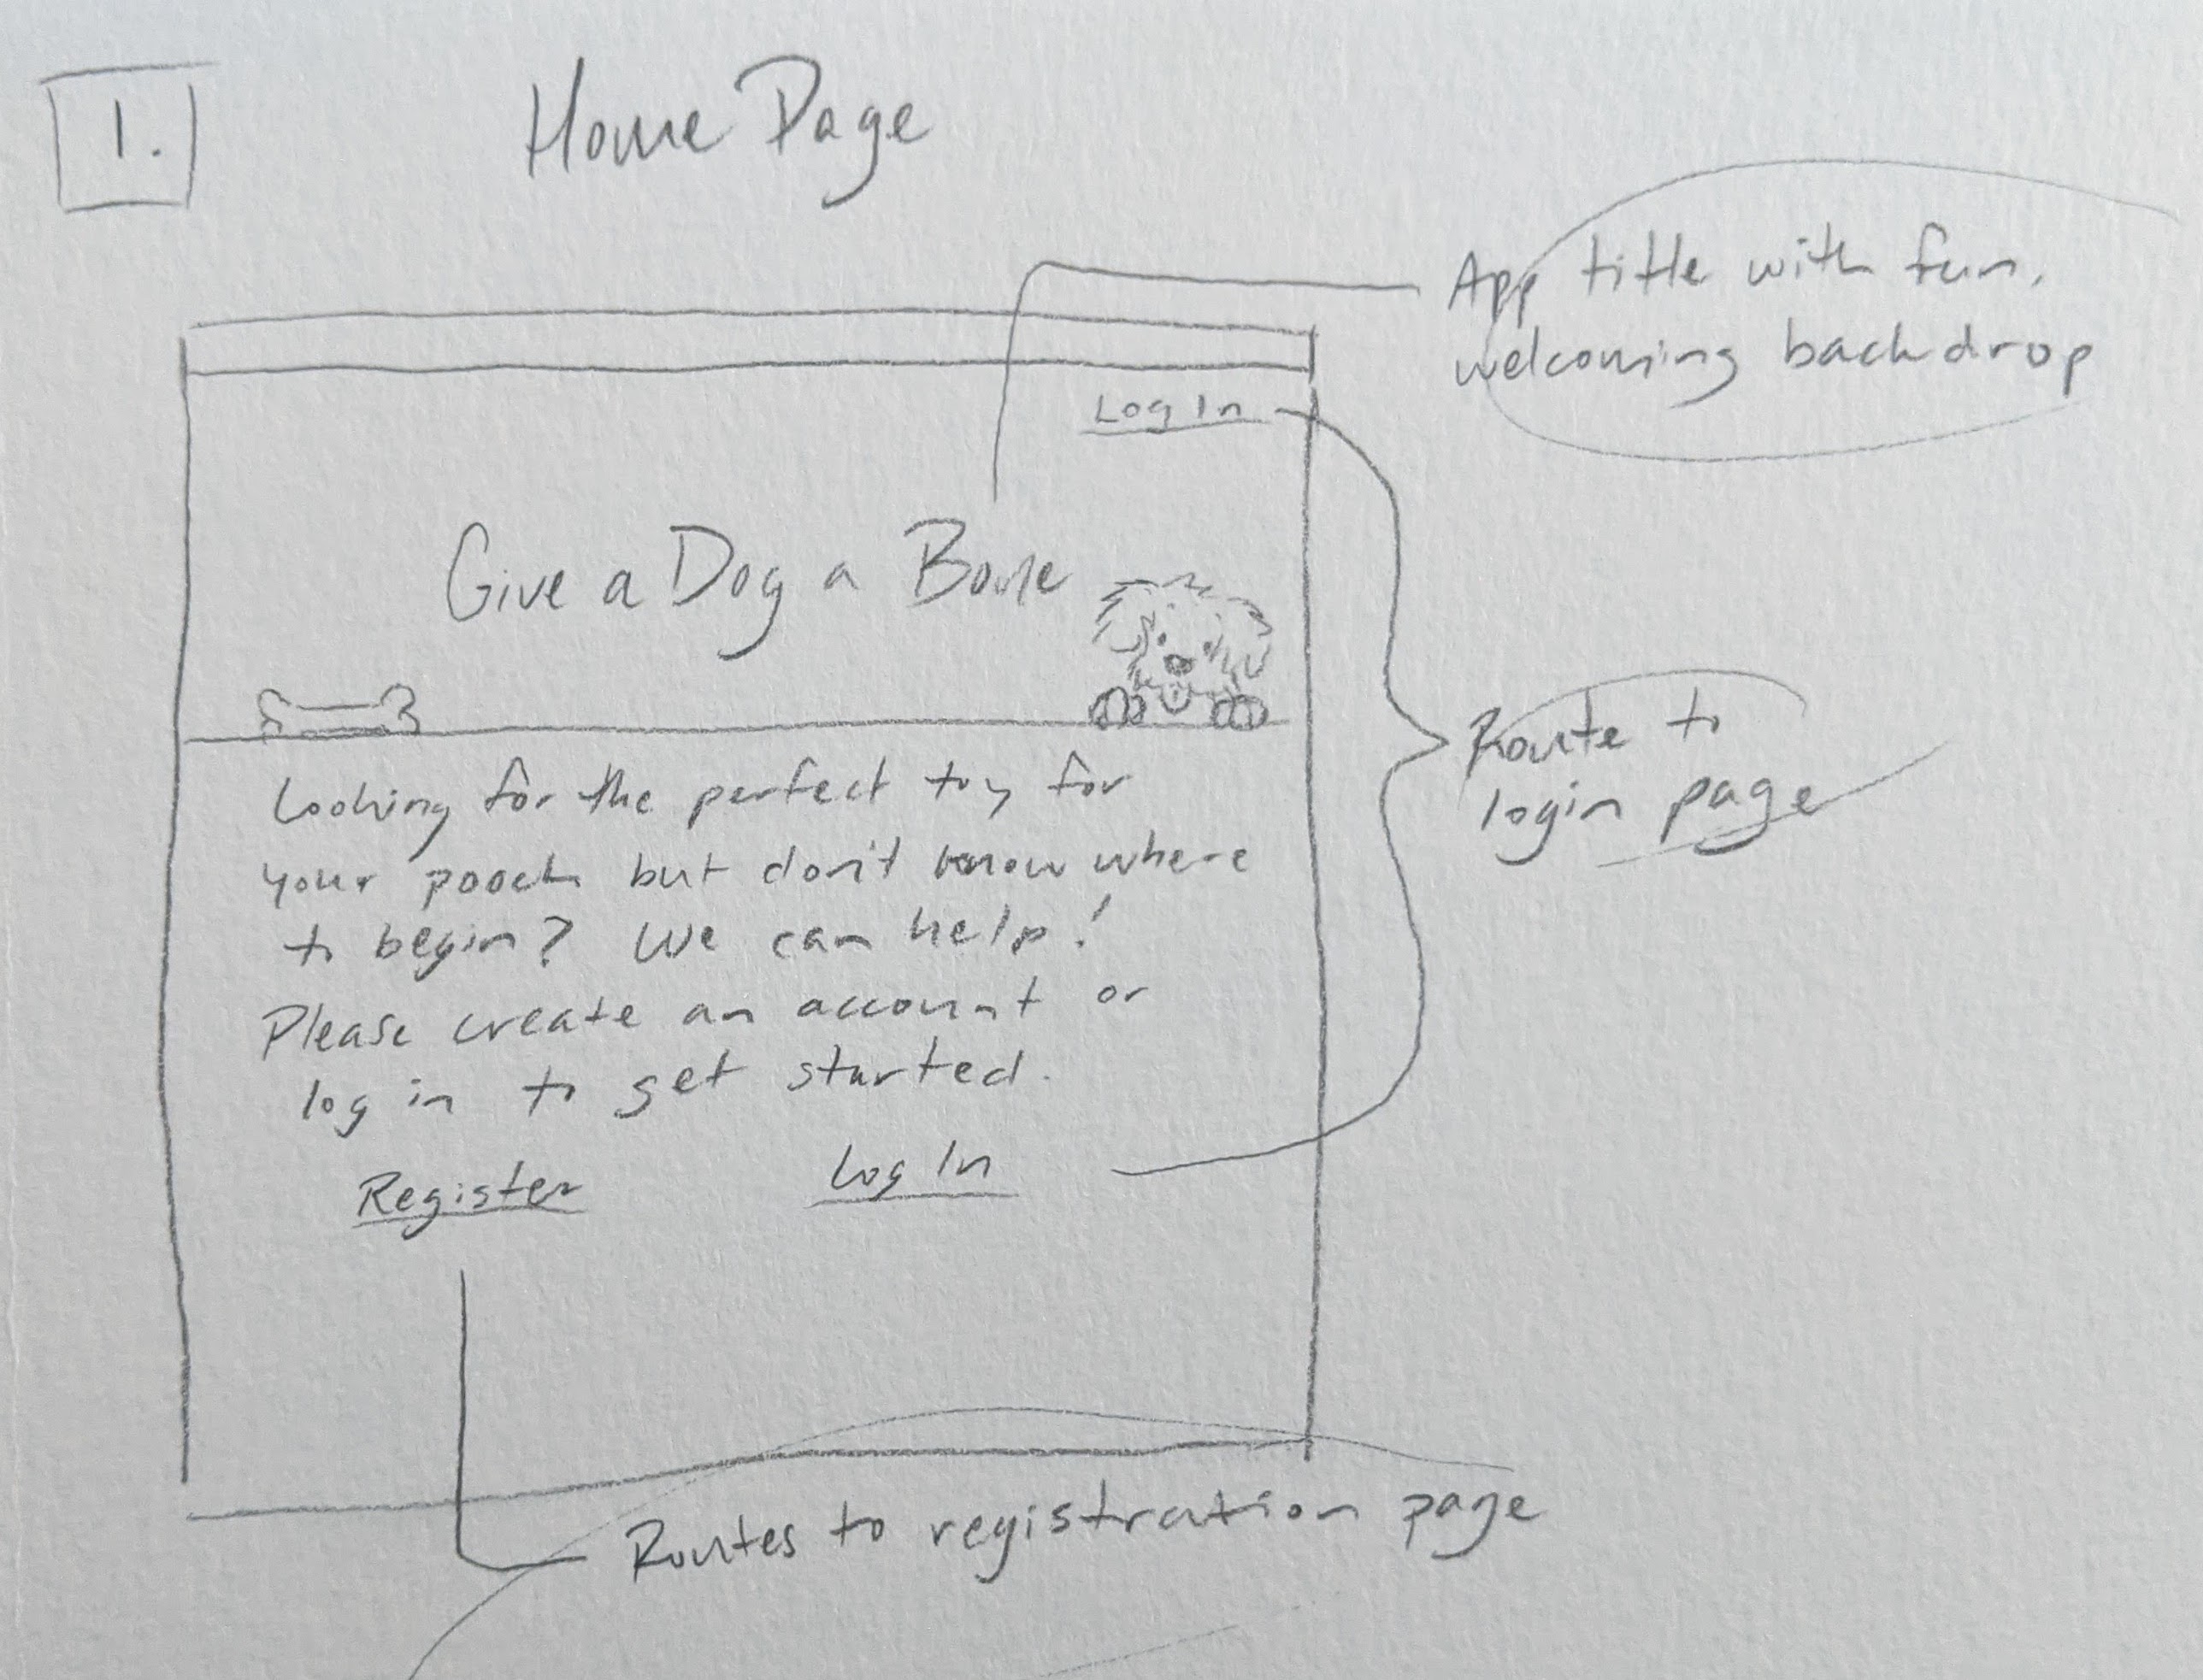 1.
Home Page
App title with fun,
welcoming backdrop
Log In
Give a Dog a Bone
Route to
login page
Looking for the perfect toy for
your pooch but don't know where
to begin? We can help!
Please create an account or
log in to get started.
Register
Log In
Routes to registration page